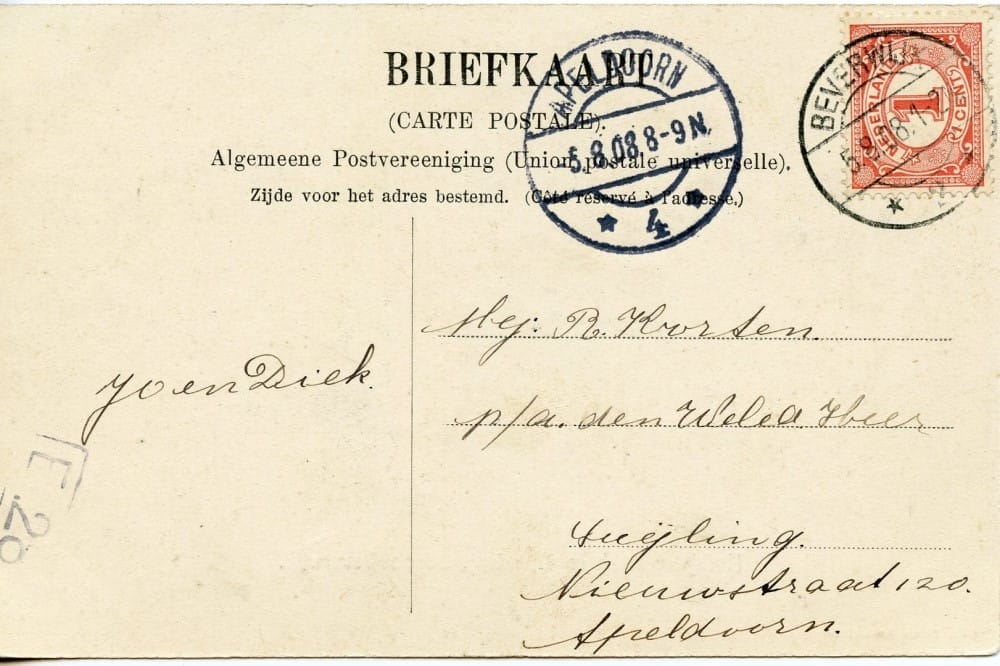 BRIEFKAART
(CARTE POSTALE).
Algemeene Postvereeniging (Union postale universelle).
Zijde voor het adres bestemd. (Côté réservé à l'adresse.)
APELDOORN
5.8.08.8-9N.
4
BEVERWIJK
5.8.08.1-2
NEDERLAND
1
1 CENT
Mej: R. Korten.
p/a. den Weled. Heer
Nieuwstraat 120.
Apeldoorn.
Jo en Diek.
F 20